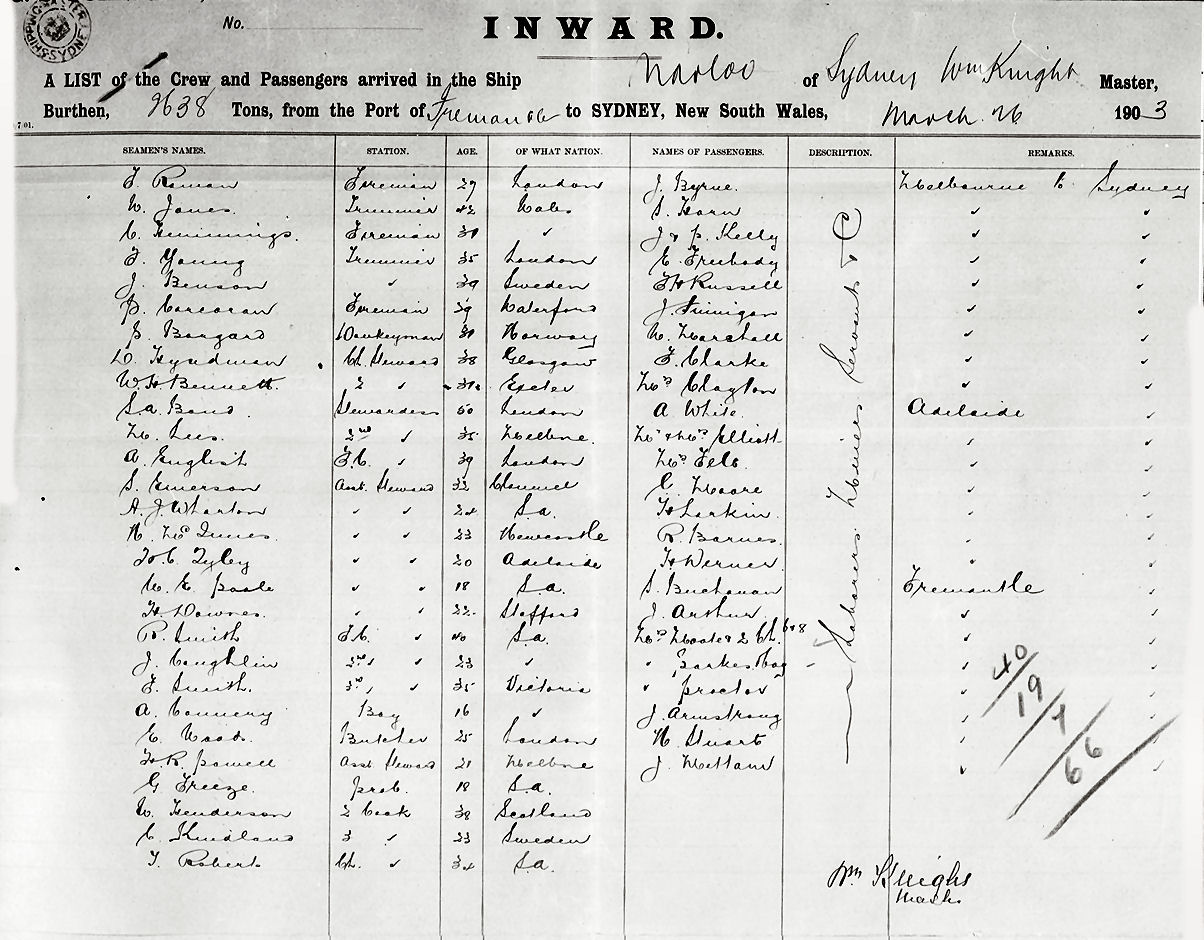 No.
INWARD.
A LIST of the Crew and Passengers arrived in the Ship of Sydney Wm Knight Master,
Burthen, 2638 Tons, from the Port of Fremantle to SYDNEY, New South Wales, March 26 1903
7.01.
SEAMEN'S NAMES. STATION. AGE. OF WHAT NATION. NAMES OF PASSENGERS. DESCRIPTION. REMARKS.
Labourers Servants & C
Fireman 29 London J. Byrne. Melbourne to Sydney
W. Jones. Trimmer 42 Wales S. Horn " "
C. Hemmings. Fireman " J & P. Kelly " "
F. Young Trimmer 35 London E. Freebody " "
J. Benson " 39 Sweden Russell " "
P. Corcoran Fireman 29 Waterford J. Finnigan " "
Donkeyman Norway W. Marshall " "
D. Hyndman Ch. Steward 38 Glasgow F. Clarke " "
W. H. Bennett. 2 " Exeter Mrs Clayton " "
S. A. Stewardess 50 London A. White. Adelaide "
M. Lees. 2nd " 35 Melbne. Mr & Mrs Elliott " "
A. English F.C. " 39 London Mrs " "
S. Emerson Asst. Steward 32 C. Moore " "
A. J. Wharton " " 24 S.A. H. Larkin. " "
N. McInnes. " " 23 Newcastle R. Barnes. " "
" " 20 Adelaide H. Werner " "
W. E. Poole " " 18 S.A. S. Buchanan Fremantle "
H. Downes " " 22 Stafford J. Arthur " "
R. Smith F.C. " 40 S.A. Mrs & 2 Ch. 6 & 8 " "
J. Coughlin 2nd " 23 " " Parkes, Boy " "
F. Smith. 3rd " 35 Victoria " Proctor " "
A. Connery Boy 16 " J. Armstrong " "
E. Woods. Butcher 25 London N. Stuart " "
H. R. Powell Asst Steward 21 Melbne J. " "
G. Freeze. Prob. 18 S.A.
W. Henderson 2 Cook 38 Scotland
C. 3 " 23 Sweden
T. Robert Ch. " 34 S.A.
40
19
7
66
Wm Knight
Master